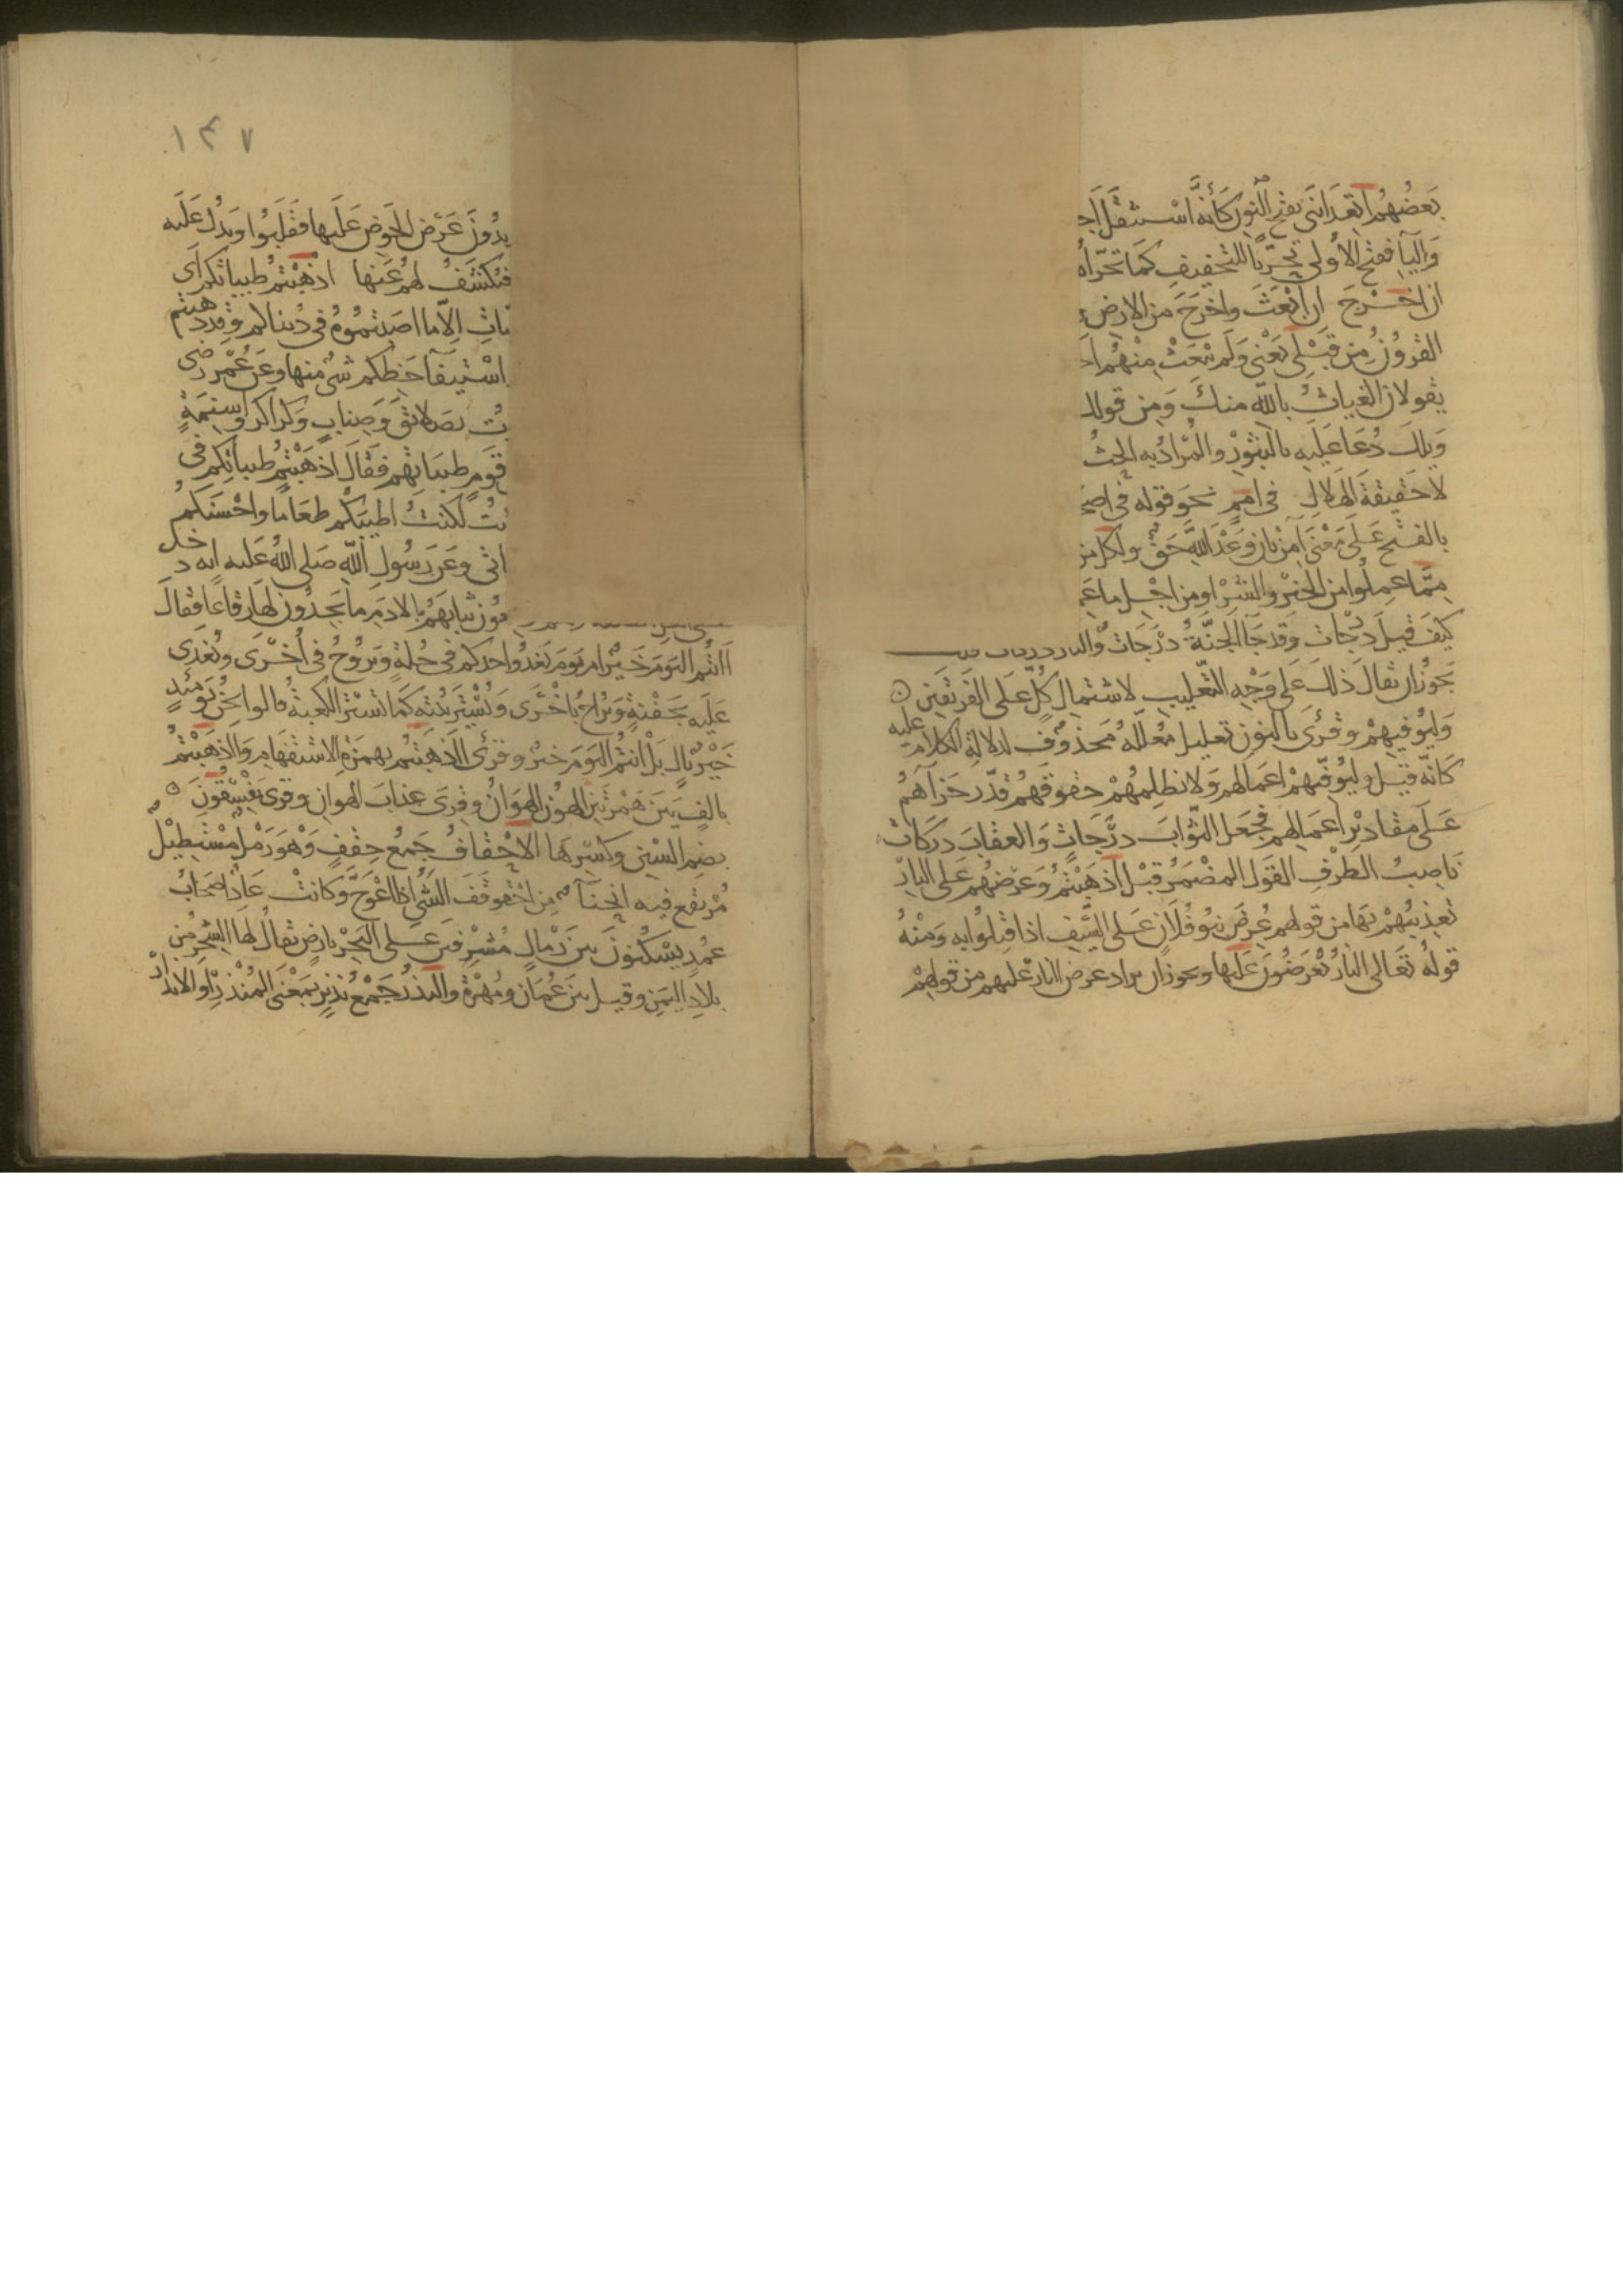 بَعضُهُم اتعدَانَنى بفتح النون كَأنَّه اسْتثقَل اجـ
وَاليآ ففتح الأولى تحَرِّيًا للتخفيف كَمَا تحَرّاهُ
ان اخْرَجَ ان ابْعَثَ واخرَجَ من الارض
القرُونُ من قَبْلى يَعْنى وَلَم يُبْعَثْ مِنْهُم احَـ
يقولان الغياث بالله منكَ وَمِن قولك
وَيلكَ دُعَا عَلَيهِ بالثبُوْر والمُرادُ به الحثُ
لا حَقيقة الهَلاك في امَمٍ نحَو قوله في اصحَـ
بالفتح عَلَى مَعْنَى آمِنْ بان وَعْدَ اللهِ حَقٌ ولكل من
مِمَّا عمِلُوا من الخَيْر والشَرِّ او مِن اجْل ما عَمـ
كيفَ قيلَ درَجَات وَقد جَآ الجنّةُ درَجَات والنار دركات
يجَوزُ ان يقالَ ذلكَ عَلى وَجْهِ التغّليب لاشتمال كُلّ عَلَى الفَريقَين ه
وَليُوَفيَهمْ وقُرئَ بالنون تعليل مُعَلَّلهُ محَذوف لدلالةِ الكلام عليه
كَانّه قيْل وليُوَفّيَهمْ اعمَالهم وَلا يظلِمُهُمْ حقوقَهُمْ قدّر جَزآءهُم
عَلَى مقَاديْر اعمَالهم فجَعل الثوّابَ درَجَاتٍ وَالعقابَ دركات
نَاصِبُ الظرْفِ القَول المضْمَرُ قبْل اذهَبْتُمْ وَعَرْضهُم عَلى النار
تعذيبُهمْ بهَا من قولهم عُرِضَ بَنوُ فُلَانٍ عَلى السَّيف اذا قُتِلُوا به وَمنْهُ
قولهُ تعَالى النارُ يُعْرَضُونَ عَلَيها ويجوز ان يراد عرض النار عليهم من قولهِمْ
١٣٧
يدُونَ عَرْض الحَوض عَلَيها فقَلَبُوا وَيدُل عَلَيه
فيُكشَفُ لهُم عَنها اذْهَبْتمُ طيباتكم اى
ـبات الاّ ما اصَبتمُوهُ فى دُنياكم وقد ذهبتم
اسْتيفآ حَظكم شئ منها وعَن عُمَر رضى
ـت بصَلائقَ وَصِنابٍ وَكَراكرَ واسنمَةٍ
قَومٍ طيبَاتهم فَقالَ اذهَبْتمُ طيباتكم فى
ـئت لكنتُ اطيَبكُم طعَامًا واحْسَنَكم
ـاتى وَعَن رَسُولِ الله صَلى اللهُ عَليه انه دخل
ـعُون ثيابَهُم بالادَم ما يَجِدُونَ لهَا رقاعًا فقالَ
أأنتُم اليَومَ خَيْر ام يَومَ يَغدُوا احدكم فى حُلةٍ وَيروُحُ فى أخْرَى ويُغدَى
عَلَيه بجَفْنةٍ وَيُراحُ بأخْرَى وَيُسْتَر بَيْته كَمَا تُسْتَر الكعبَةُ قالوا نحْنُ يَومَئِذٍ
خَيْرٌ قال بَلْ أنتُم اليَومَ خَيْرٌ وقرئَ أأذهَبْتُم بهمزةِ الاستفهَامِ وَآاذهَبْتمُ
بالفٍ بَينَ هَمزتَين الهُون الهَوَانُ وقُرئَ عذابَ الهوانِ وقرئ يَفسُقُونَ ه
بضم السِّين وكسِرها الاحْقافُ جَمعُ حِقْفٍ وَهْوَ رَمْلٌ مُسْتطِيْلٌ
مُرْتفع فيه انحنآء مِن احْقَوقَفَ الشَّئُ اذا اعْوَجَّ وَكانتْ عَادٌ اصحَابُ
عُمُدٍ يسْكنونَ بين رِمالٍ مُشرفين عَلى البَحْر بارضٍ يقالُ لهَا الشِحْر من
بلادِ اليَمَنِ وقيل بَينَ عُمَان ومُهْرَةَ والنذُر جَمْعُ نذيْر بمَعْنَى المُنْذر او الانذار